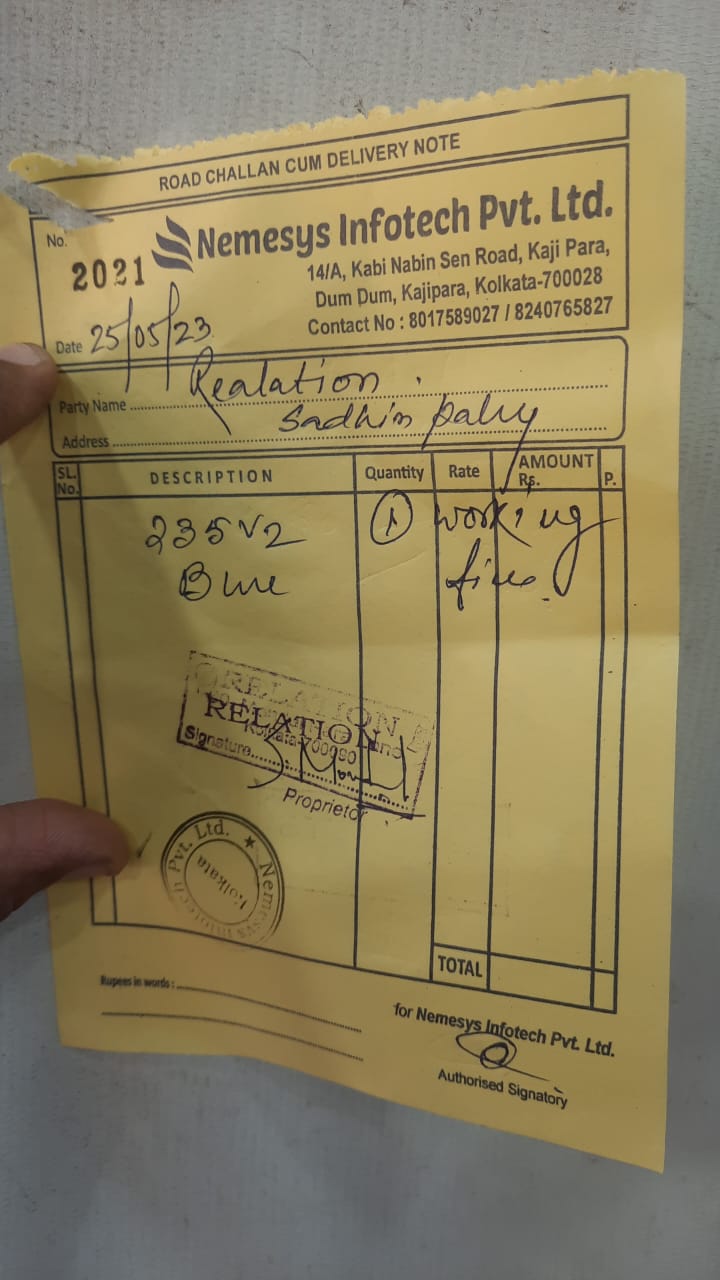 ROAD CHALLAN CUM DELIVERY NOTE
No.
2021
Nemesys Infotech Pvt. Ltd.
14/A, Kabi Nabin Sen Road, Kaji Para,
Dum Dum, Kajipara, Kolkata-700028
Contact No : 8017589027 / 8240765827
Date 25/05/23
Party Name Realation
Address Sadhin pally
SL. No. DESCRIPTION Quantity Rate AMOUNT Rs. P.
235v2 1 working
Blue fine.
RELATION
Kolkata-700090
Signature
Proprietor
Nemesys Infotech Pvt. Ltd. ★
Kolkata
TOTAL
Rupees in words :
for Nemesys Infotech Pvt. Ltd.
Authorised Signatory